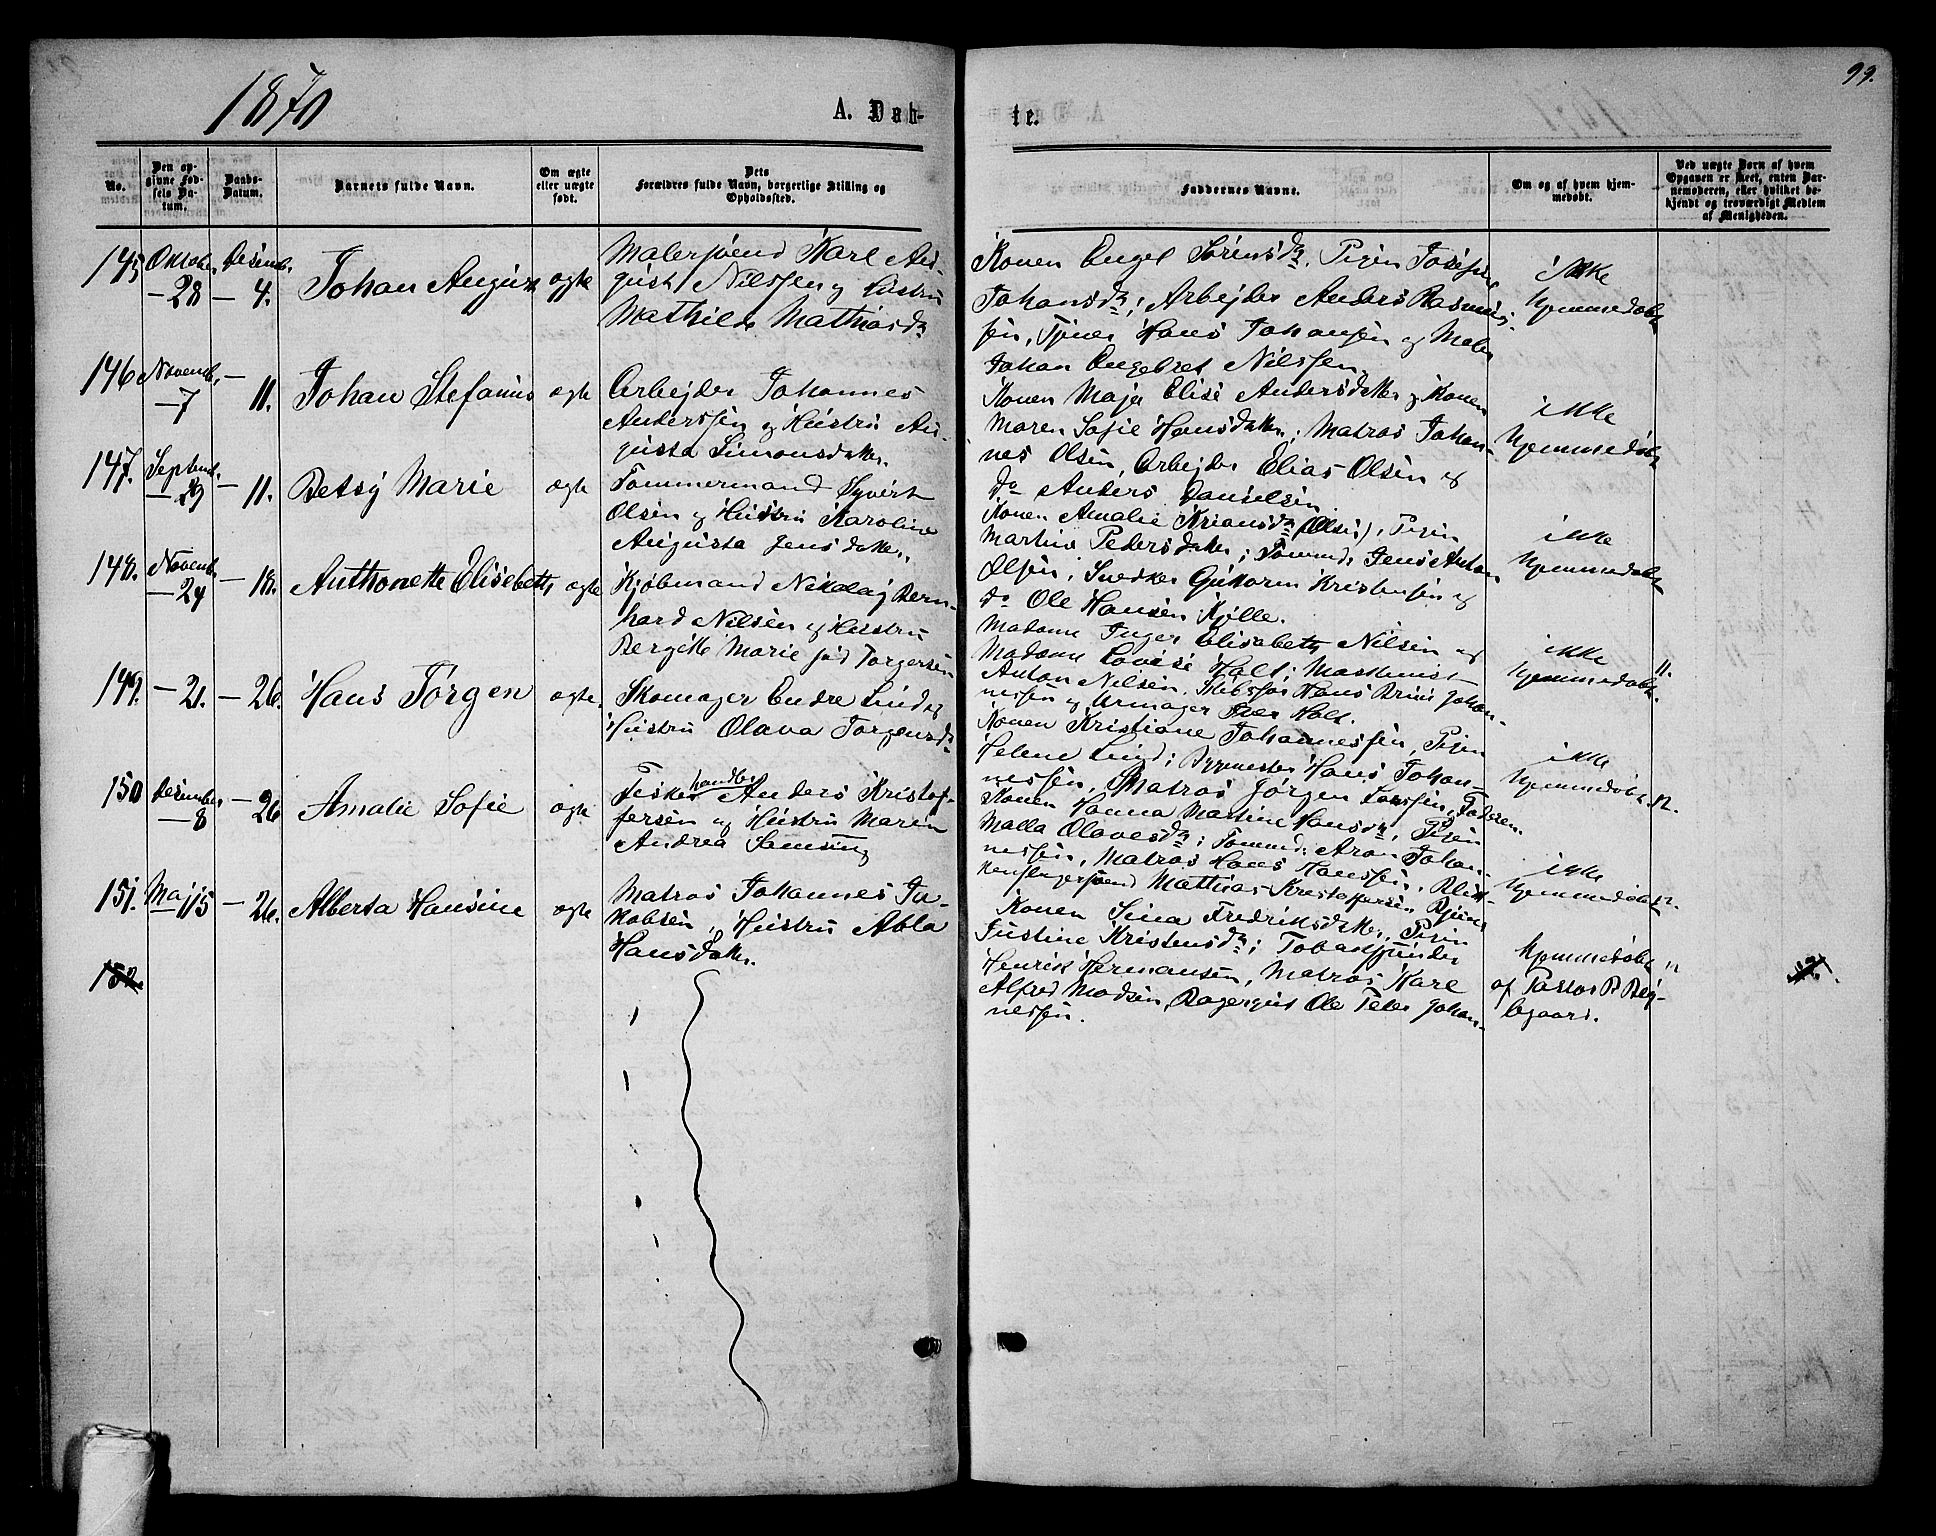 1870
A. Døb-
te.
99.
No.
Den op-
givne Fød-
sels Da-
tum.
Daabs-
Datum.
Barnets fulde Navn.
Om ægte
eller uægte
født.
Dets
Forældres fulde Navn, borgerlige Stilling og
Opholdssted.
Faddernes Navne.
Om og af hvem hjem-
medøbt.
Ved uægte Børn af hvem
Opgaven er skeet, enten Bar-
nemoderen, eller hvilket be-
kjendt og troværdigt Medlem
af Menigheden.
145 Oktober Desemb.
—28 —4. Johan August ægte
Malersvend Karl Au-
gust Nilssen og Hustru
Mathilde Mathiasdr
Konen Engel Sørensdr, Pigen Josefine
Johansdr; Arbejder Anders Rasmus-
sen, Tjener Hans Johansen og Maler
Johan Engebret Nilssen.
ikke
hjemmedøbt
146 Novemb. —
—7 11. Johan Stefanus ægte
Arbejder Johannes
Anderssen og Hustru Au-
gusta Simonsdatter.
Konen Maja Elise Andersdatter og Konen
Maren Sofie Hansdatter; Matros Johan-
nes Olsen, Arbejder Elias Olsen og
do Anders Danielsen.
ikke
hjemmedøbt
147. Septemb.
—29 —11. Betsy Marie ægte
Tømmermand Syvert
Olsen og Hustru Karoline
Augusta Jensdatter.
Konen Amalie Kriansdr (Olsen), Pigen
Martine Pedersdatter; Tømmd. Jens Anton
Olsen, Snedker Gukorm Kristensen og
do Ole Hansen Kjølle.
ikke
hjemmedøbt
148. Novemb.
—24 —18. Anthonette Elisebeth ægte
Kjøbmand Nikolaj Bern-
hard Nilsen og Hustru
Bergitte Marie fød Torgersen
Madame Inger Elisabeth Nilsen og
Madame Lovise Holt; Maskinist
Anton Nilsen, Skibsfør Hans Brun Johan-
nessen og Urmager Iver Holt.
ikke
hjemmedøbt. 11.
149. —21. —26. Hans Jørgen ægte
Skomager Endre Lind og
Hustru Olava Jørgensdr
Konen Kristiane Johannessen, Pigen
Helene Lind; Bygmester Hans Johan-
nessen, Matros Jørgen Larssen, Faderen.
ikke
hjemmedøbt. 12.
150 Desember
—8 —26 Amalie Sofie ægte
Fiskehandler Anders Kristof-
fersen og Hustru Maren
Andrea Samsing
Konen Hanna Martine Hansdr, Pigen
Malla Olavesdr; Tømmd: Aron Johan-
nessen, Matros Hans Hanssen, Blik-
kenslagersvend Mathias Kristoffersen Bjune
ikke
hjemmedøbt 12.
151. Maj 15 —26. Alberta Hansine ægte
Matros Johannes Ja-
kobsen, Hustru Abla
Hansdatter.
Konen Sina Fredriksdatter, Pigen
Justine Kristensdr; Tobakspinder
Henrik Hermansen, Matros Karl
Alfred Madsen, Bagergut Ole Peter Johan-
nessen.
hjemmedøbt "
af Pastor B Byg-
begaard.
152.